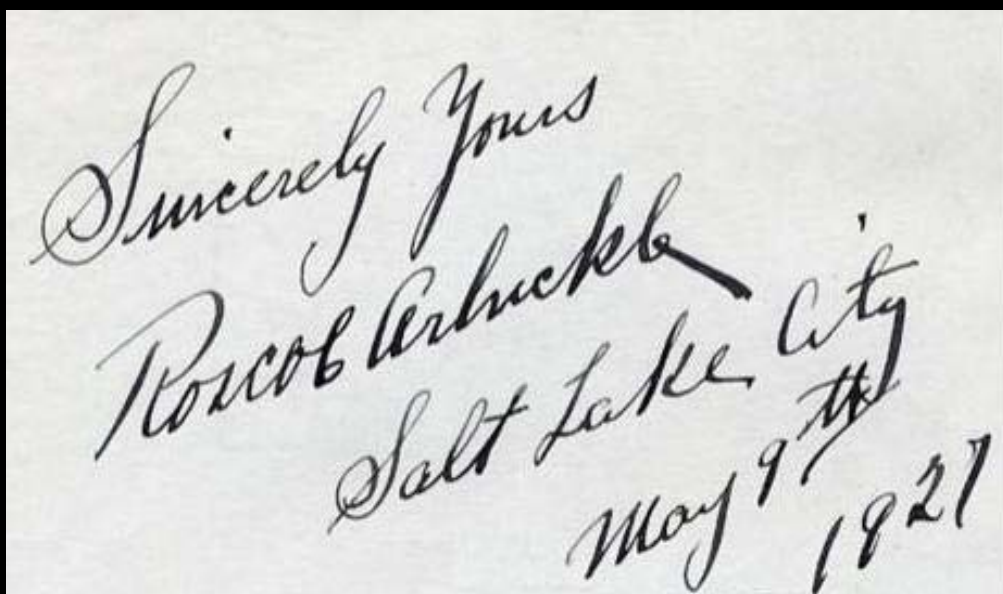 Sincerely Yours
Roscoe Arbuckle
Salt Lake City
May 9th
1927